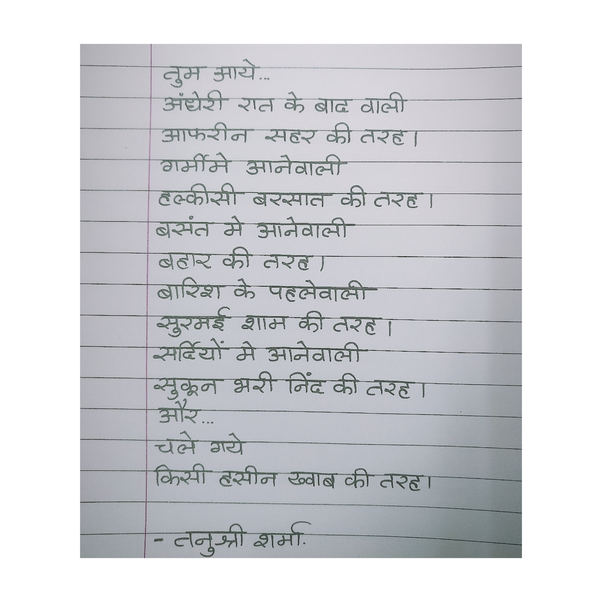 तुम आये...
अंधेरी रात के बाद वाली
आफरीन सहर की तरह।
गर्मीमे आनेवाली
हल्कीसी बरसात की तरह।
बसंत मे आनेवाली
बहार की तरह।
बारिश के पहलेवाली
सुरमई शाम की तरह।
सर्दियों मे आनेवाली
सुकून भरी निंद की तरह।
और...
चले गये
किसी हसीन ख्वाब की तरह।
- तनुश्री शर्मा.